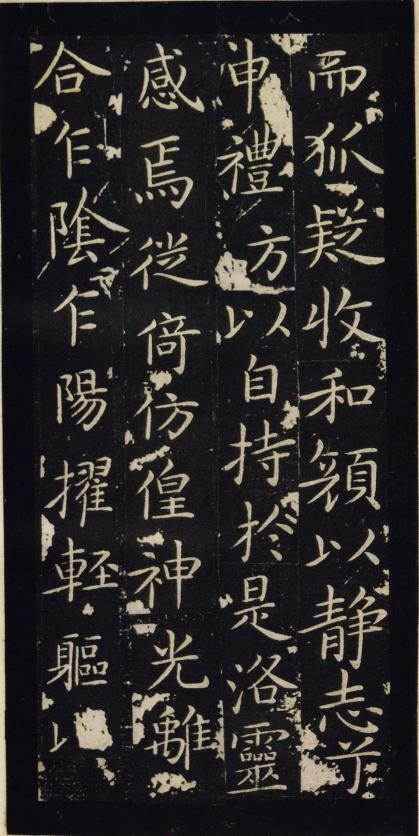 而狐疑收和顔以静志兮
申禮方以自持於是洛靈
感焉徙倚仿偟神光離
合乍隂乍陽擢輕軀以